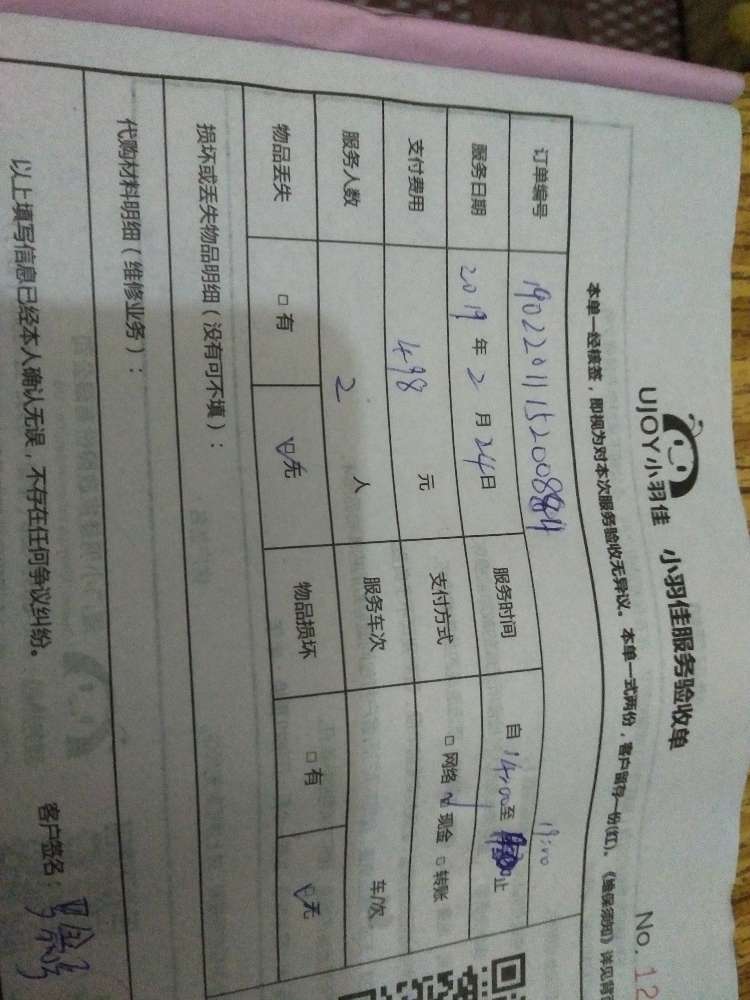 UJOY小羽佳 小羽佳服务验收单
No. 12
本单一经核签，即视为对本次服务验收无异议。本单一式两份，客户留存一份(红)。《维保须知》详见背
订单编号 190220111520088
服务日期 2019年2月24日 服务时间 自14:00至 19:00 止
支付费用 498 元 支付方式 □网络 ☑现金 □转账
服务人数 2 人 服务车次 车/次
物品丢失 □有 ☑无 物品损坏 □有 ☑无
损坏或丢失物品明细（没有可不填）：
代购材料明细（维修业务）：
以上填写信息已经本人确认无误，不存在任何争议纠纷。 客户签名：